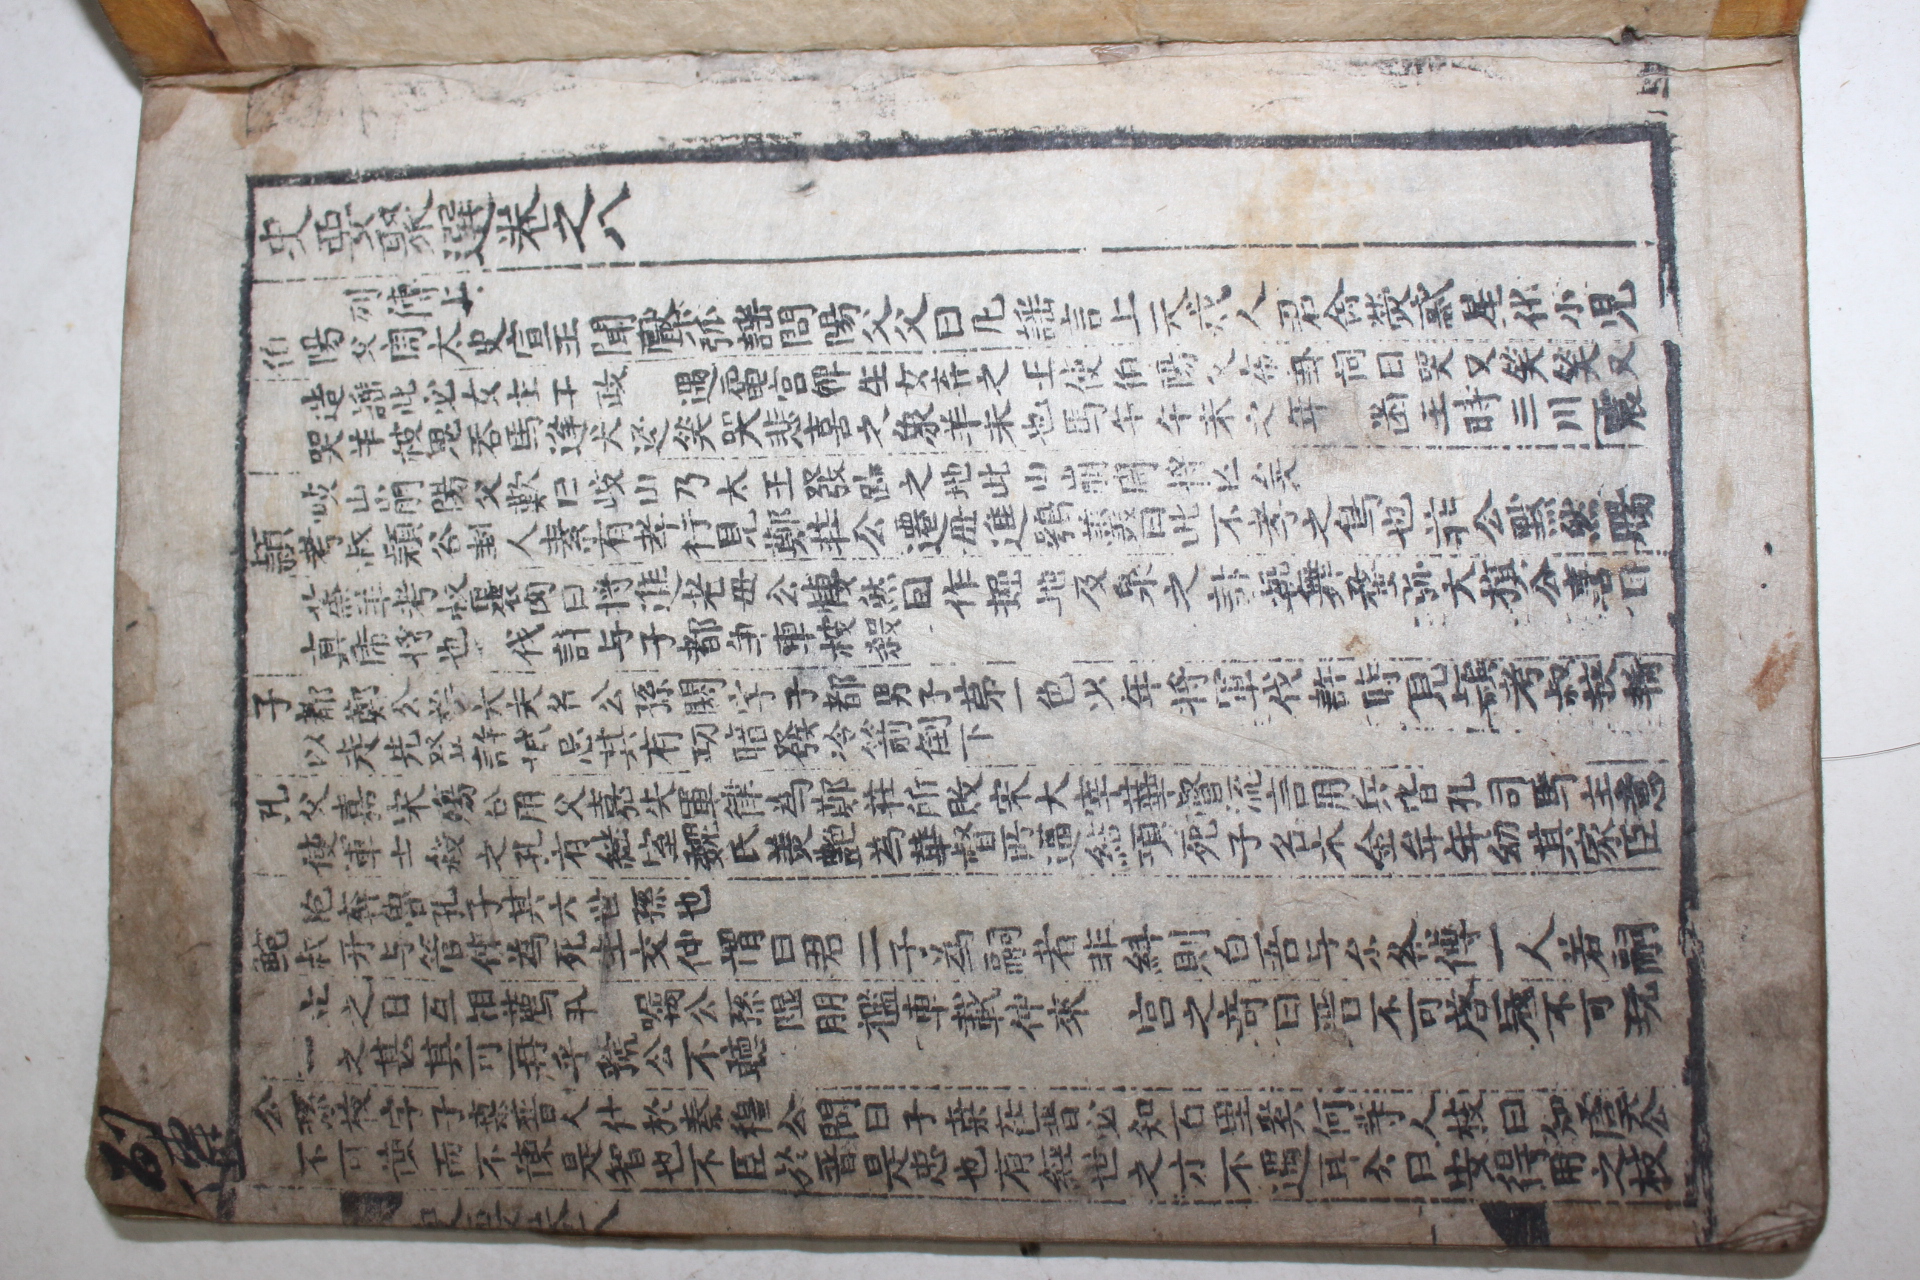 史要聚選卷之八
列傳上
伯陽父周太史宣王聞檿弧謠問陽父父曰凡謠言上天戒人君命熒惑星化小児
造謠此必女主干政 遇黿宮婢生女弃之王使伯陽父布卦詞曰哭又笑笑又
哭羊被鬼吞馬逢犬逐笑哭悲喜之象羊未也馬午午未之年 幽王時三川震
岐山崩陽父歎曰岐山乃太王發跡之地此山崩周將亡矣
頴考叔頴谷封人素有孝行見鄭莊公遷毋進鴞羹曰此不孝之鳥也莊公黙然賜
蒸羊考叔褁肉曰將進老毋公悽然因作掘地及泉之計 舞蝥弧大旗公喜曰
真席將也 伐許与子都争車被殺
子都鄭公族大夫名公孫閼字子都男子苐一色少年將軍伐許時見頴考叔挾輈
以走先登許城忌其有功暗發冷箭倒下
孔父嘉宋殤公用父嘉失軍律為鄭莊所敗宋大宰華督流言用兵皆孔司馬主意
使軍士殺之孔有継室魏氏羙艶為華督所逼結項死子名木金年年幼其家臣
抱奔魯孔子其六世孫也
鮑叔牙与管仲為死生交仲謂曰君二子為嗣者非糾則白吾与尒各傅一人若嗣
立之日互相薦 囑公孫隰朋檻車載仲來 宮之竒曰晋不可啓冦不可玩
一之甚其可再乎虢公不聽
公孫枝字子桑晋人仕於秦穆公問曰子桑在晋必知百里奚何等人枝曰知虞公
不可諫而不諫是智也不臣於晋是忠也有經世之才不遇耳公曰安得用之枝
史要卷八
列選